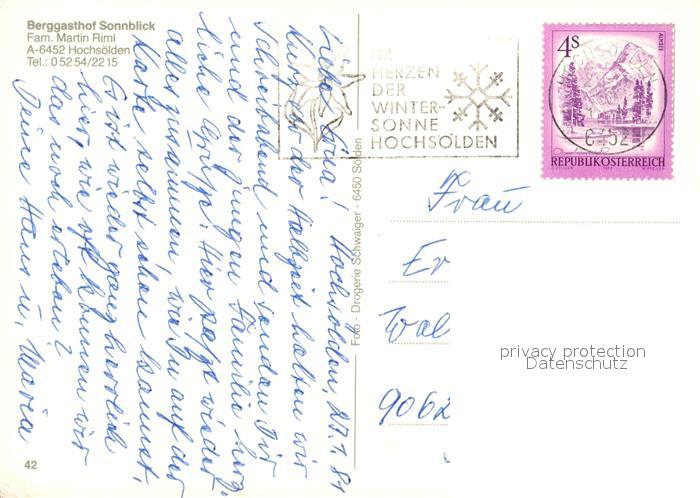 Berggasthof Sonnblick
Fam. Martin Riml
A-6452 Hochsölden
Tel.: 0 52 54/22 15
IM
HERZEN
DER
WINTER-
SONNE
HOCHSÖLDEN
4s
ALMSEE
6452
REPUBLIK ÖSTERREICH
Hochsölden, 27.1.84
Liebe Erna!
Kurz vor der Halbzeit halten wir
Schreibabend und senden Dir
und der jungen Familie herz-
liche Grüße. Hier paßt wieder
alles zusammen wie Du auf der
Karte selbst sehen kannst.
Es ist wieder ganz herrlich
hier, wie oft können wir
das noch erleben?
Deine Hans u. Maria
Foto - Drogerie Schwaiger - 6450 Sölden
Frau
Er
Wal
9062
privacy protection
Datenschutz
42